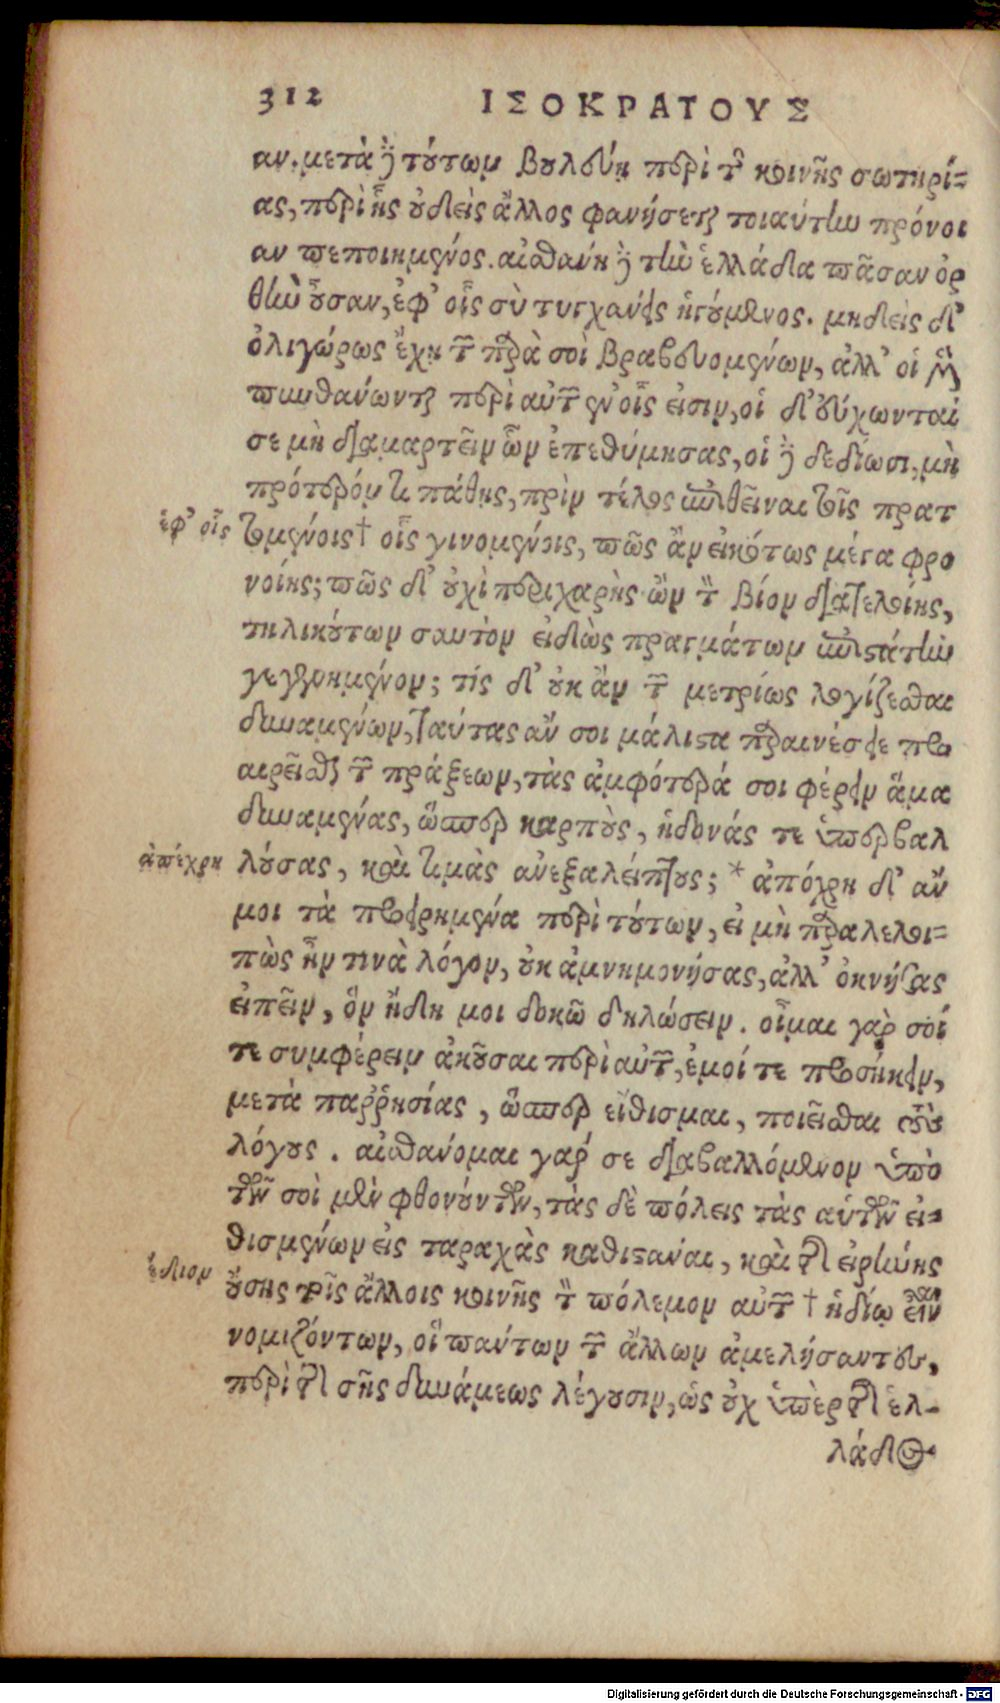 312 ΙΣΟΚΡΑΤΟΥΣ
αν. μετὰ δὲ τούτων βουλεύῃ περὶ τῆς κοινῆς σωτηρί-
ας, περὶ ἧς οὐδεὶς ἄλλος φανήσεται τοιαύτην πρόνοι
αν πεποιημένος. αἰσθάνῃ δὲ τὴν ἑλλάδα πᾶσαν ὀρ
θὴν οὖσαν, ἐφ' οἷς σὺ τυγχάνεις ἡγούμενος. μηδεὶς δ'
ὀλιγώρως ἔχῃ τῶν παρὰ σοὶ βραβευομένων, ἀλλ' οἱ μὲν
πυνθάνωνται περὶ αὐτῶν ἐν οἷς εἰσιν, οἱ δ' εὔχωνταί
σε μὴ διαμαρτεῖν ὧν ἐπεθύμησας, οἱ δὲ δεδίωσι, μὴ
πρότερόν τι πάθῃς, πρὶν τέλος ἐπιθεῖναι τοῖς πρατ
ἐφ' οἷς τομένοις† οἷς γινομένοις, πῶς ἂν εἰκότως μέγα φρο
νοίης; πῶς δ' οὐχὶ περιχαρὴς ὢν τὸν βίον διατελοίης,
τηλικούτων σαυτὸν εἰδὼς πραγμάτων ἐπιστάτην
γεγενημένον; τίς δ' οὐκ ἂν τῶν μετρίως λογίζεσθαι
δυναμένων, ταύτας ἄν σοι μάλιστα παραινέσειε προ
αιρεῖσθαι τῶν πράξεων, τὰς ἀμφότερά σοι φέρειν ἅμα
δυναμένας, ὥσπερ καρποὺς, ἡδονάς τε ὑπερβαλ
ἀπέχρη λούσας, καὶ τιμὰς ἀνεξαλείπτους; * ἀπόχρη δ' ἄν
μοι τὰ προειρημένα περὶ τούτων, εἰ μὴ παραλελοι-
πὼς ἦν τινὰ λόγον, οὐκ ἀμνημονήσας, ἀλλ' ὀκνήσας
εἰπεῖν, ὃν ἤδη μοι δοκῶ δηλώσειν. οἶμαι γὰρ σοί
τε συμφέρειν ἀκοῦσαι περὶ αὐτῶν, ἐμοί τε προσήκειν,
μετὰ παῤῥησίας, ὥσπερ εἴθισμαι, ποιεῖσθαι τοὺς
λόγους. αἰσθάνομαι γάρ σε διαβαλλόμενον ὑπὸ
τῶν σοὶ μὲν φθονούντων, τὰς δὲ πόλεις τὰς αὑτῶν εἰ-
θισμένων εἰς ταραχὰς καθιστάναι, καὶ τὴν εἰρήνης
ἴδιον οὔσης τοῖς ἄλλοις κοινῆς τὸν πόλεμον αὐτῶν † ἡδίω εἶναι
νομιζόντων, οἳ πάντων τῶν ἄλλων ἀμελήσαντες,
περὶ τῆς σῆς δυνάμεως λέγουσιν, ὡς οὐχ ὑπὲρ τῆς ἑλ-
λάδος
Digitalisierung gefördert durch die Deutsche Forschungsgemeinschaft - DFG